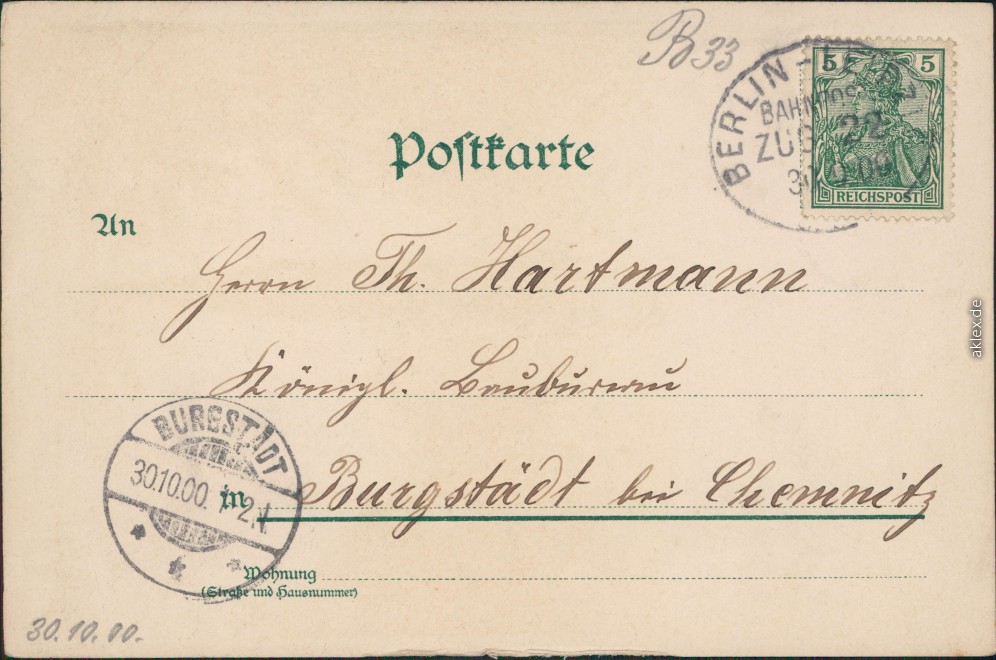 B33
5 5
BERLIN-LEIPZIG
BAHNPOST
ZUG 22
30.10.00
REICHSPOST
Postkarte
An
Herrn Th. Hartmann
Königl. Baubureau
BURGSTÄDT
30.10.00. 1-2N.
in Burgstädt bei Chemnitz
Wohnung
(Straße und Hausnummer)
30.10.00.
aklex.de